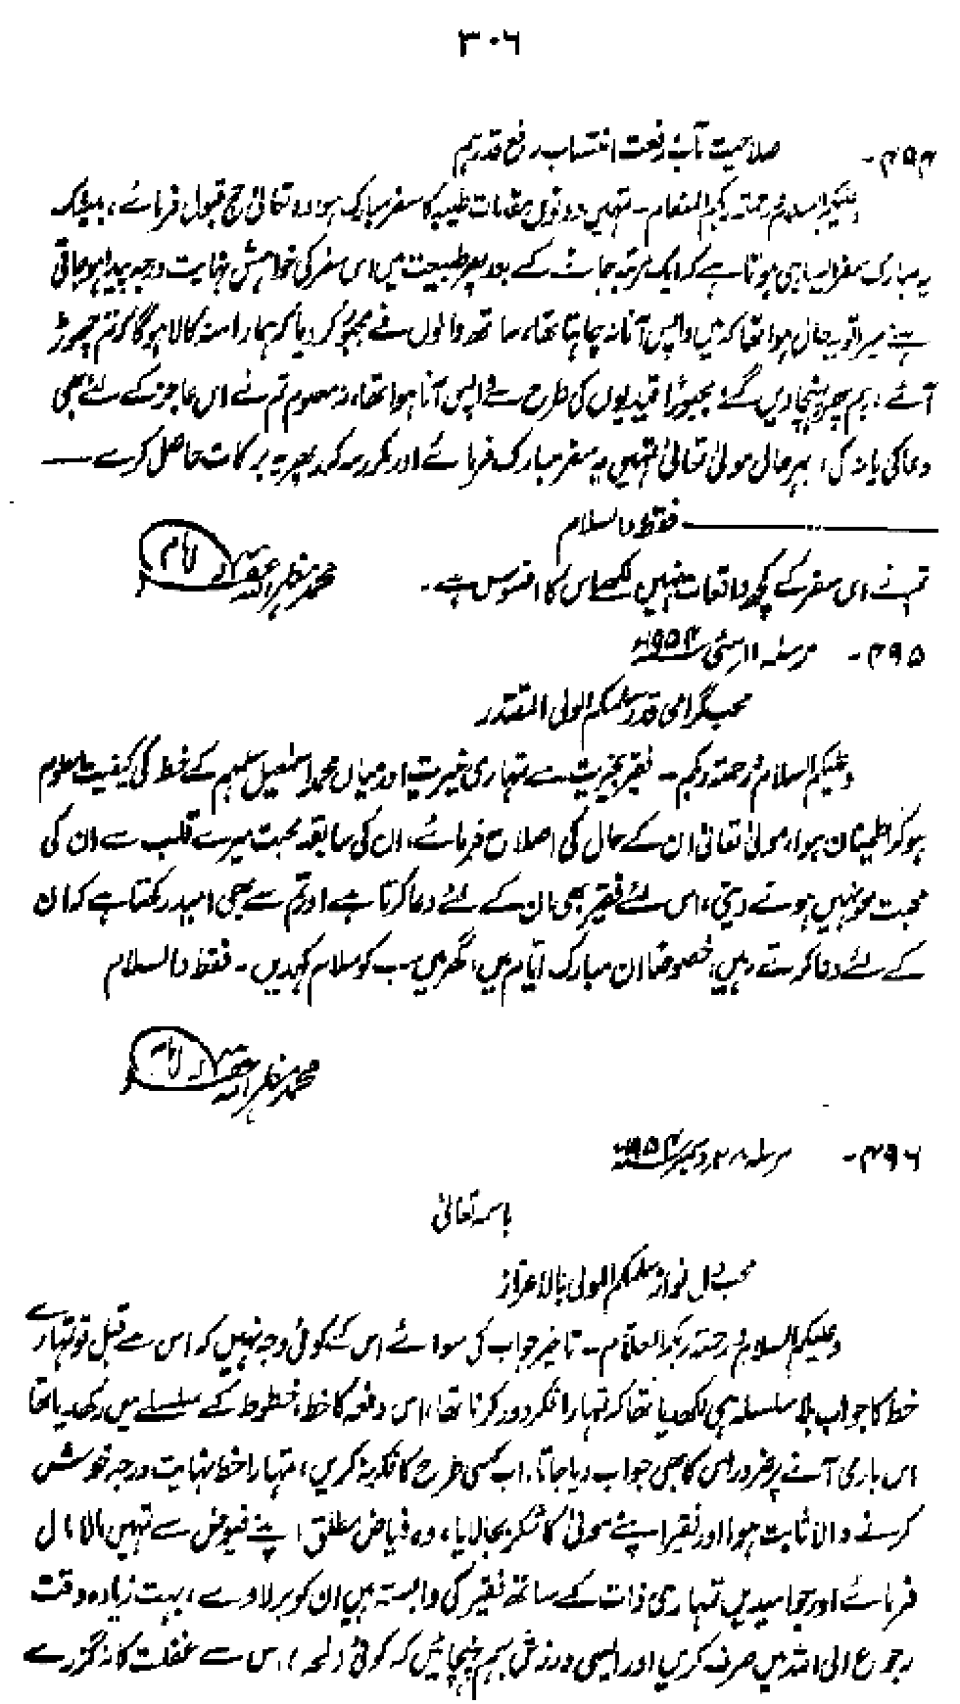 ۳۰۶
۴۹۴- صلاحیت مآب رفعت انتساب رفع قدرہم
وعلیکم السلام ورحمتہ ربکم المنعام۔ تمہیں دونوں مقامات طیبہ کا سفر مبارک ہو اور تعالیٰ حج قبول فرمائے، بیشک
یہ مبارک سفر ایسا ہی ہوتا ہے کہ ایک مرتبہ جانے کے بعد پھر طبیعت میں اس سفر کی خواہش نہایت درجہ پیدا ہو جاتی
ہے میرا تو یہ حال ہوا تھا کہ میں واپس آنا نہ چاہتا تھا، ساتھ والوں نے مجبور کر دیا کہ ہمارا منہ کالا ہوگا کہ تم چھوڑ
آئے، ہم پھر پہنچا دیں گے، مجبوراً قیدیوں کی طرح سے واپس آنا ہوا تھا، نہ معلوم تم نے اس عاجز کے لئے بھی
دعا کی یا نہ کی، بہر حال مولیٰ تعالیٰ تمہیں یہ سفر مبارک فرمائے اور مکرر سہ کرر پھر یہ برکات حاصل کرے —
فقط والسلام
تم نے اس سفر کے کچھ واقعات نہیں لکھے اس کا افسوس ہے۔
محمد مظہر اللہ غفرلہ امام
۴۹۵- مرسلہ ۱۱ مئی ۱۹۵۴ء
محب گرامی قدر سلمکم المولی المقتدر
وعلیکم السلام ورحمتہ ربکم۔ فقیر بخیریت ہے تمہاری خیریت اور میاں محمد اسمٰعیل سلمہم کے خط کی کیفیت معلوم
ہو کر اطمینان ہوا، مولیٰ تعالیٰ ان کے حال کی اصلاح فرمائے، ان کی سابقہ محبت میرے قلب سے ان کی
محبت محو نہیں ہونے دیتی، اس لئے فقیر بھی ان کے لئے دعا کرتا ہے اور تم سے بھی امید رکھتا ہے کہ ان
کے لئے دعا کرتے رہیں، خصوصاً ان مبارک ایام میں، گھر میں سب کو سلام کہدیں۔ فقط والسلام
محمد مظہر اللہ غفرلہ امام
۴۹۶- مرسلہ ۲۸ دسمبر ۱۹۵۴ء
باسمہ تعالیٰ
محب دل نواز سلمکم المولی بالاعزاز
وعلیکم السلام ورحمتہ ربکم العلام۔ تاخیر جواب کی سوائے اس کے کوئی وجہ نہیں کہ اس سے قبل تو تمہارے
خط کا جواب بلا سلسلہ ہی لکھدیا تھا کہ تمہارا فکر دور کرنا تھا، اس دفعہ کا خط، خطوط کے سلسلے میں رکھدیا تھا
اس باری آنے پر ضرور اس کا بھی جواب دیا جاتا، اب کسی طرح کا فکر نہ کریں، تمہارا خط نہایت درجہ خوش
کرنے والا ثابت ہوا اور فقیر اپنے مولیٰ کا شکر بجا لایا، وہ فیاض مطلق اپنے فیوض سے تمہیں مالا مال
فرمائے اور جو امیدیں تمہاری ذات کے ساتھ فقیر کی وابستہ ہیں ان کو بر لاوے، بہت زیادہ وقت
رجوع الی اللہ میں صرف کریں اور ایسی ورزش بہم پہنچائیں کہ کوئی لمحہ اس سے غفلت کا نہ گزرے